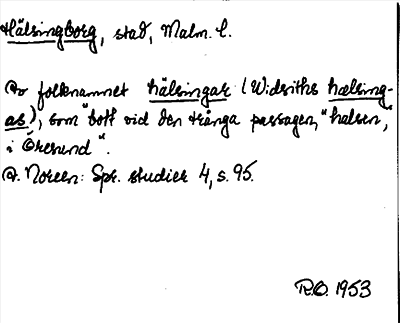 Hälsingborg, stad, Malm. l.
Av folknamnet hälsingar (Widsiths hælsing-
as), som "bott vid den trånga passagen, "halsen",
i Öresund".
A. Noreen: Spr. studier 4, s. 95.
R.O. 1953